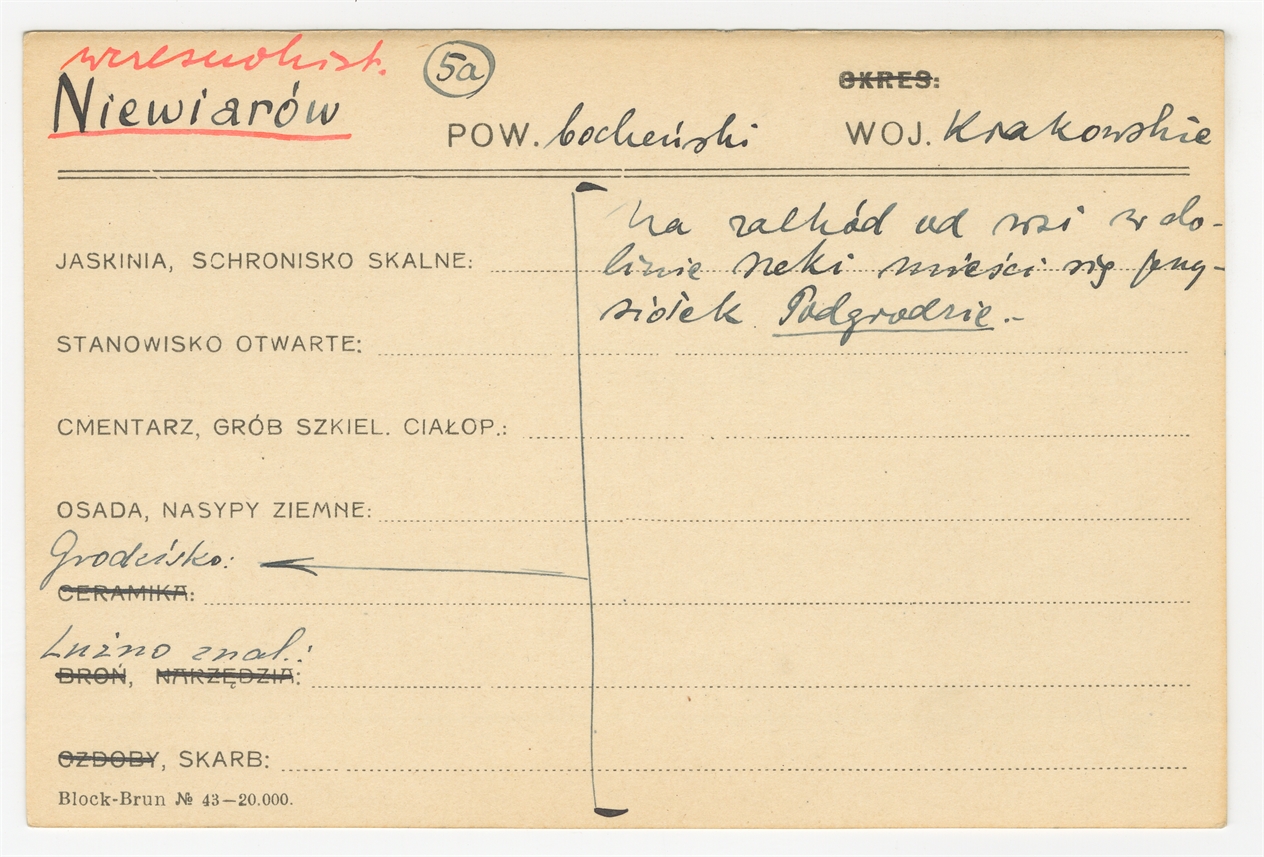 wczesnohist.
Niewiarów
5a
OKRES:
POW. bocheński
WOJ. Krakowskie
Na zachód od wsi w do-
linie rzeki mieści się przy-
siółek Podgrodzie.-
JASKINIA, SCHRONISKO SKALNE:
STANOWISKO OTWARTE:
CMENTARZ, GRÓB SZKIEL. CIAŁOP.:
OSADA, NASYPY ZIEMNE:
Grodzisko:
CERAMIKA:
Luźno znal.:
BROŃ, NARZĘDZIA:
OZDOBY, SKARB:
Block-Brun № 43—20.000.